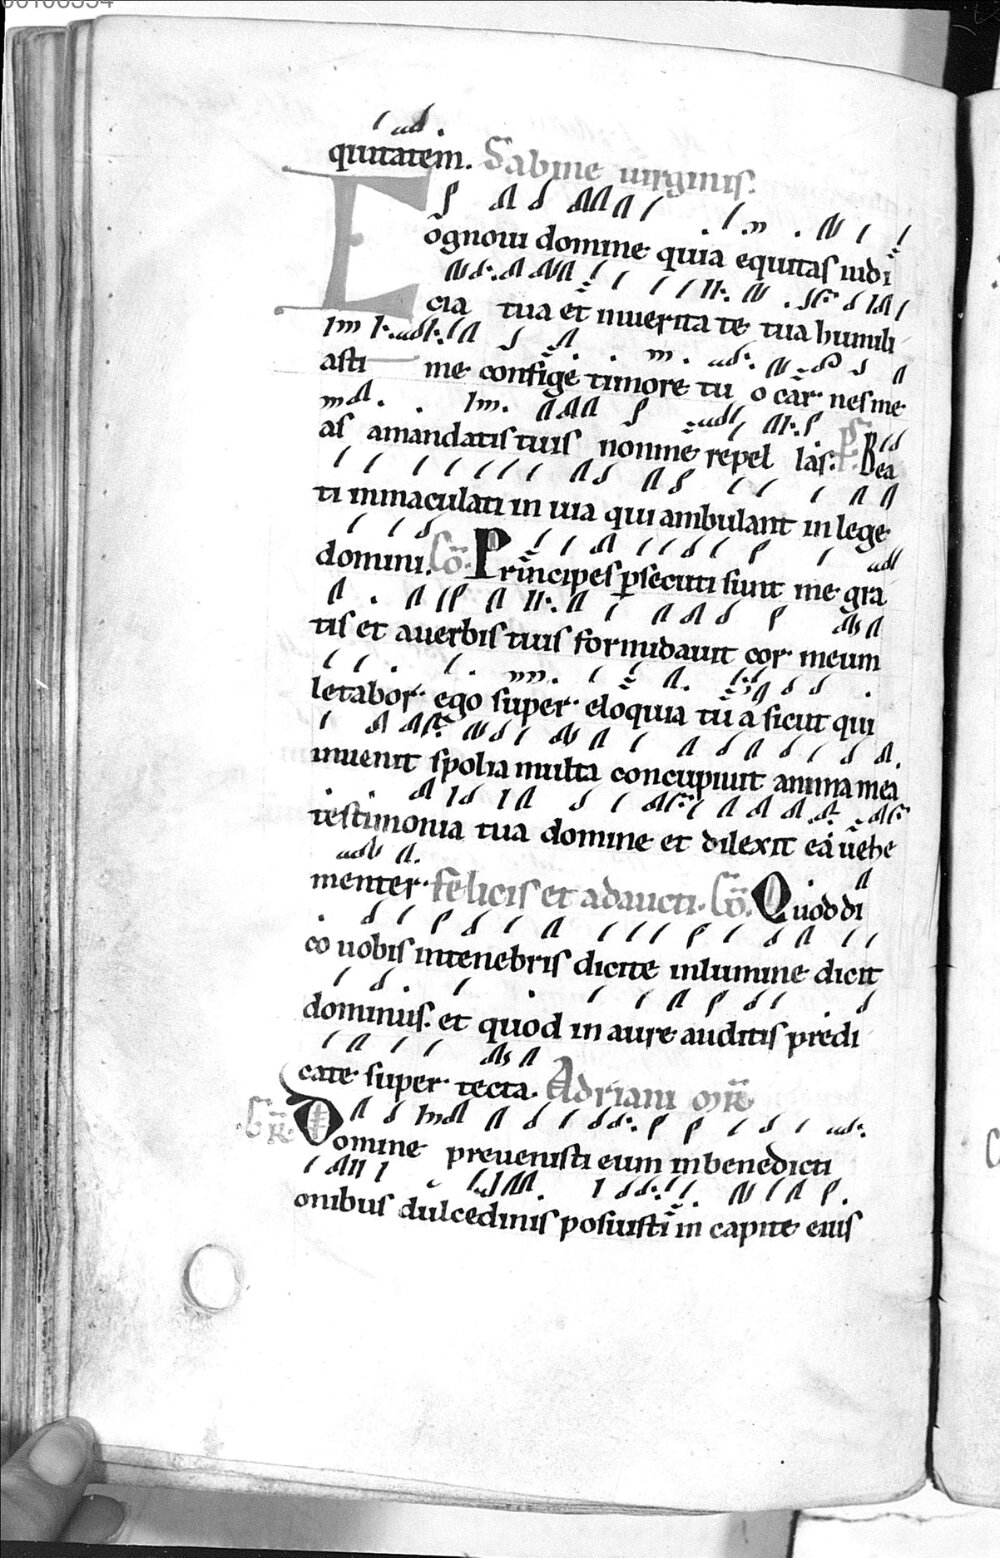 quitatem. Sabine uirginis.
Eognoui domine quia equitas iudi
cia tua et inuerita te tua humili
asti me confige timore tu o car nes me
as amandatis tuis nonme repel las. Ps. Bea
ti inmaculati in uia qui ambulant in lege
domini. Co. Principes psecuti sunt me gra
tis et auerbis tuis formidauit cor meum
letabor ego super eloquia tu a sicut qui
inuenit spolia multa concupiuit anima mea
testimonia tua domine et dilexit ea uehe
menter. Felicis et adaucti. Co. Quod di
co uobis intenebris dicite inlumine dicit
dominus. et quod in aure auditis predi
cate super tecta. Adriani mr
Gr. Domine preuenisti eum inbenedicti
onibus dulcedinis posuisti in capite eius